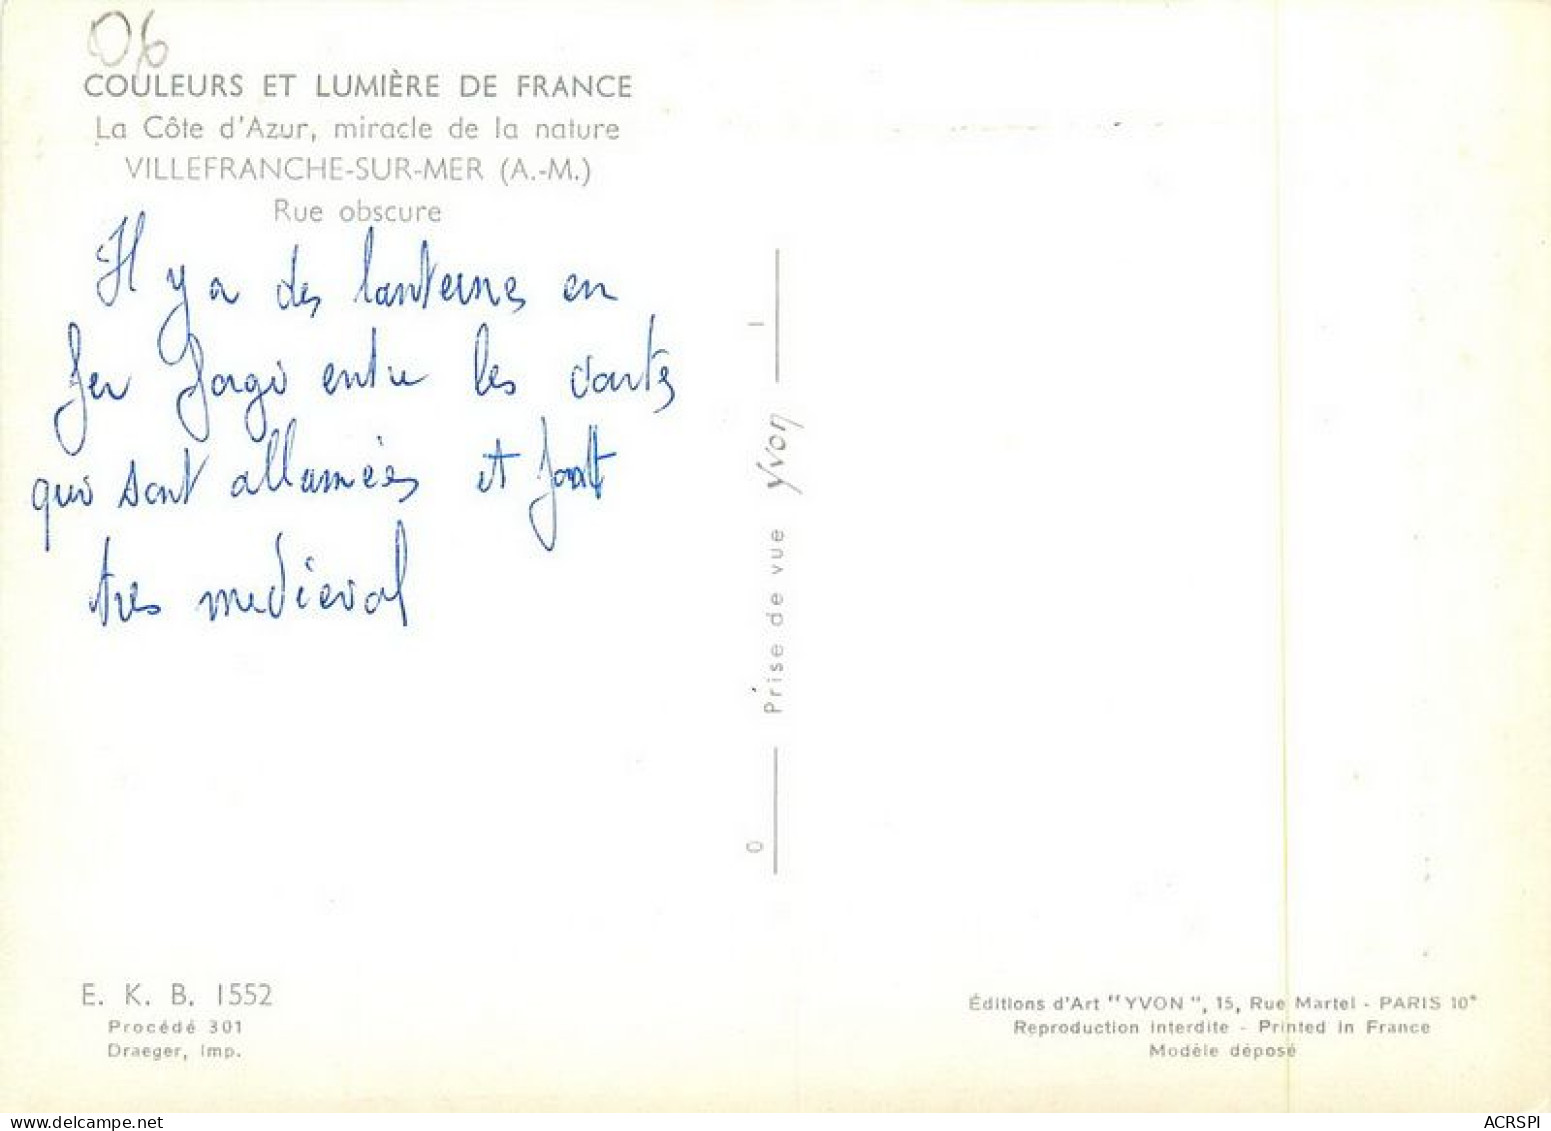 06
COULEURS ET LUMIÈRE DE FRANCE
La Côte d'Azur, miracle de la nature
VILLEFRANCHE-SUR-MER (A.-M.)
Rue obscure
Il y a des lanternes en
fer forgé entre les
qui sont allumées et font
tres medieval
Prise de vue Yvon
E. K. B. 1552
Procédé 301
Draeger, Imp.
Éditions d'Art "YVON", 15, Rue Martel - PARIS 10e
Reproduction Interdite - Printed in France
Modèle déposé
ACRSPI